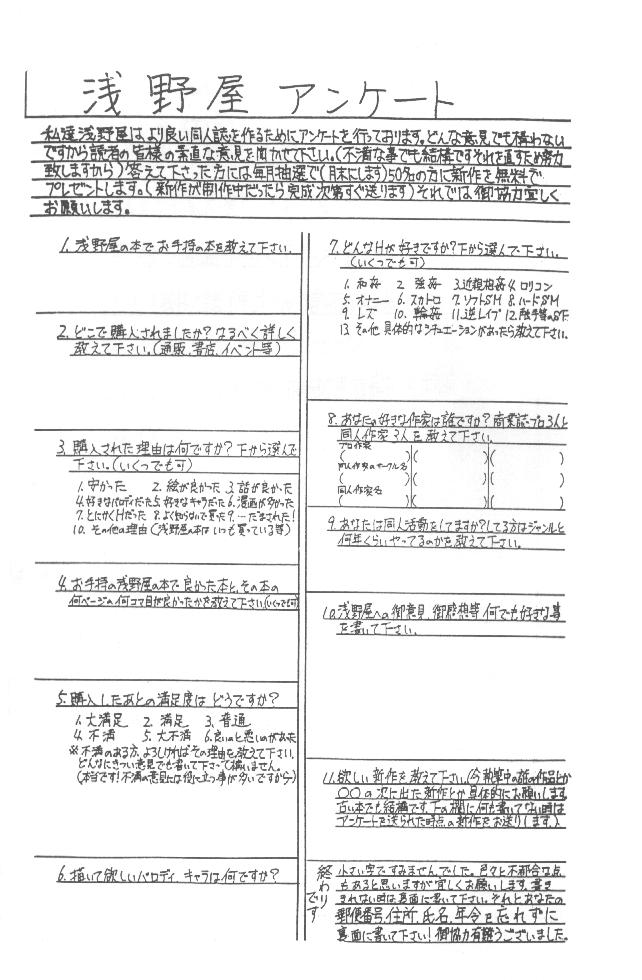 浅野屋 アンケート
私達浅野屋はより良い同人誌を作るためにアンケートを行っております。どんな意見でも構わない
ですから読者の皆様の素直な意見を聞かせて下さい。(不満な事でも結構ですそれを直すため努力
致しますから)答えて下さった方には毎月抽選で(月末にします)50名の方に新作を無料で
プレゼントします。(新作が制作中だったら完成次第すぐ送ります)それでは御協力宜しく
お願いします。
1.浅野屋の本でお手持の本を教えて下さい。
2.どこで購入されましたか?なるべく詳しく
教えて下さい。(通販、書店、イベント等)
3.購入された理由は何ですか?下から選んで
下さい。(いくつでも可)
1.安かった 2.絵が良かった 3.話が良かった
4.好きなパロディだった 5.好きなキャラだった 6.漫画が多かった
7.とにかくHだった 8.よく知らないで買った 9.…だまされた!
10.その他の理由(浅野屋の本はいつも買っている等)
4.お手持の浅野屋の本で良かった本と、その本の
何ページの何コマ目が良かったかを教えて下さい(いくつでも可)
5.購入したあとの満足度はどうですか?
1.大満足 2.満足 3.普通
4.不満 5.大不満 6.良いのと悪いのがあった
※不満のある方、よろしければその理由を教えて下さい。
どんなにきつい意見でも書いて下さって構いません。
(本当です!不満の意見には役に立つ事が多いですから)
6.描いて欲しいパロディ、キャラは何ですか?
7.どんなHが好きですか?下から選んで下さい。
(いくつでも可)
1.和姦 2.強姦 3.近親相姦 4.ロリコン
5.オナニー 6.スカトロ 7.ソフトSM 8.ハードSM
9.レズ 10.輪姦 11.逆レイプ 12.触手等のSF
13.その他 具体的なシチュエーションがあったら教えて下さい。
8.あなたの好きな作家は誰ですか?商業誌・プロ3人と
同人作家3人を教えて下さい。
プロ作家
( )( )( )
同人作家のサークル名
( )( )( )
同人作家名
( )( )( )
9.あなたは同人活動をしてますか?してる方はジャンルと
何年くらいやってるのかを教えて下さい。
10.浅野屋への御意見、御感想等何でも好きな事
を書いて下さい。
11.欲しい新作を教えて下さい。(今執筆中の話の作品とか
○○の次に出た新作とか具体的にお願いします
古い本でも結構です。下の欄に何も書いてない時は
アンケートを送られた時点の新作をお送りします。)
終わりです
小さい字ですみませんでした。色々と不都合な点
もあると思いますが宜しくお願いします。書き
きれない時は裏面に書いて下さい。それとあなたの
郵便番号、住所、氏名、年令を忘れずに
裏面に書いて下さい!御協力有難うございました。